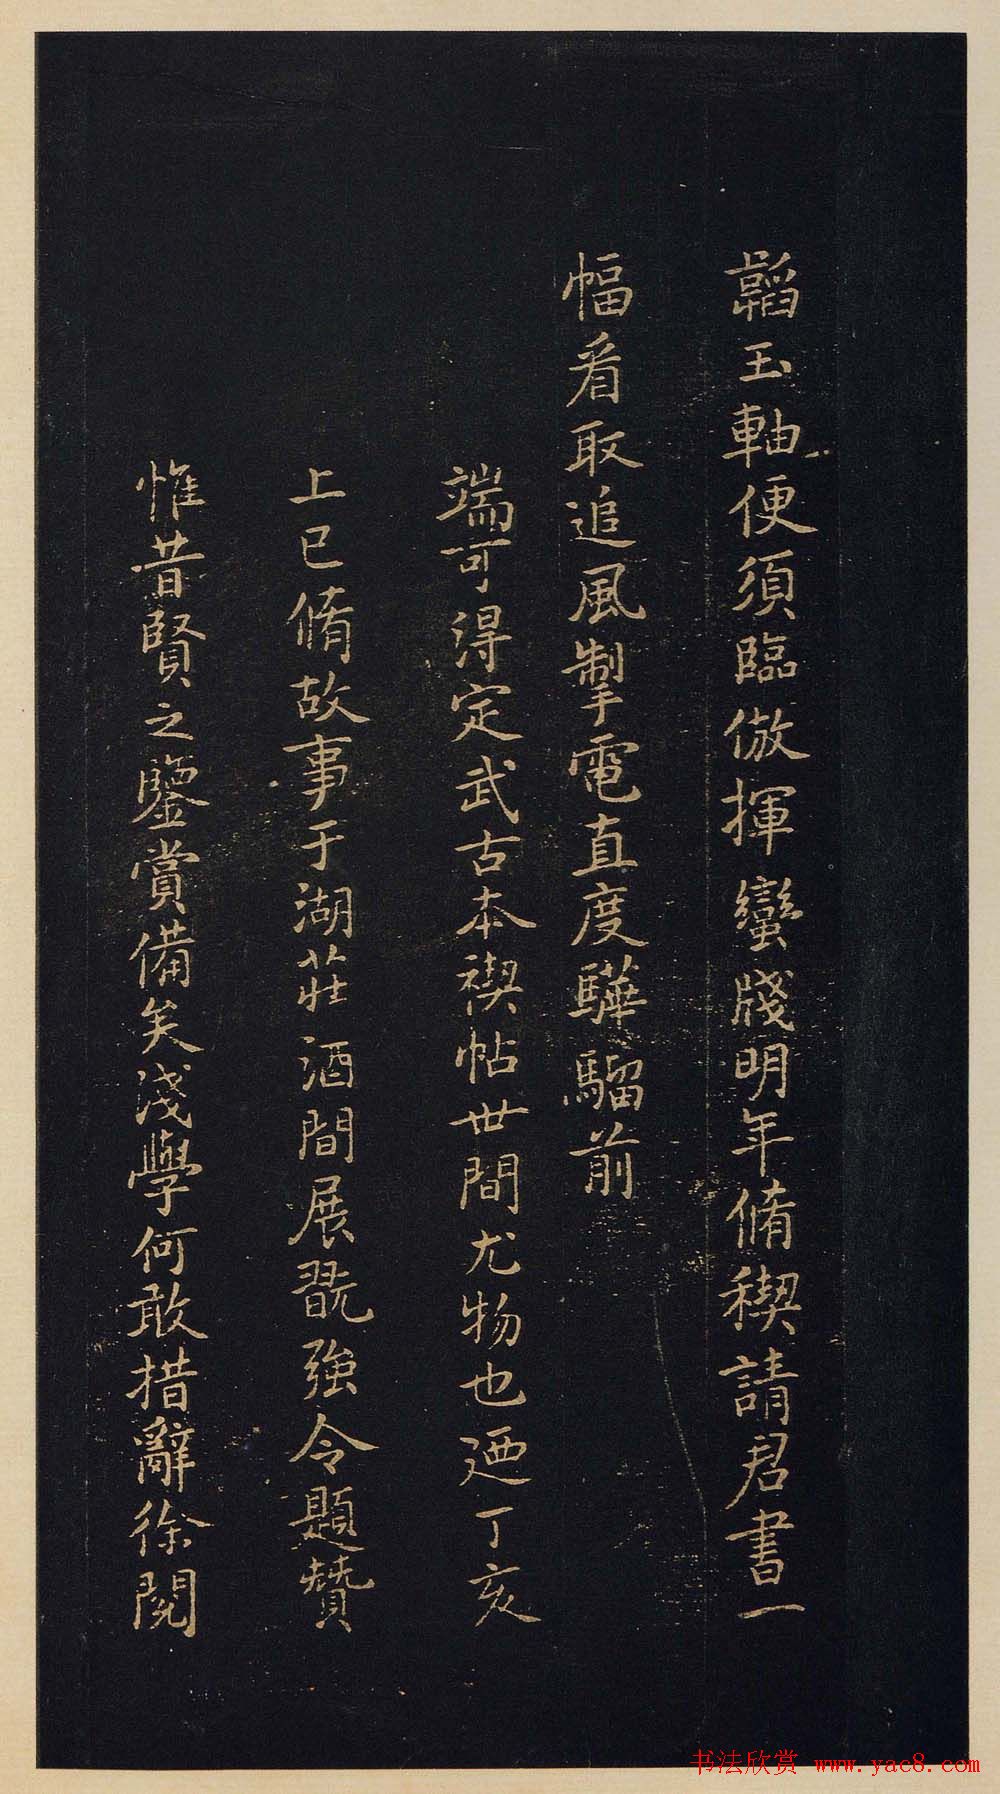 韜玉軸便須臨倣揮蠻牋明年脩稧請君書一
幅看取追風掣電直度驊騮前
端可得定武古本禊帖世間尤物也廼丁亥
上巳脩故事于湖莊酒間展翫強令題贊
惟昔賢之鑒賞備矣淺學何敢措辭徐閱
书法欣赏 www.yac8.com